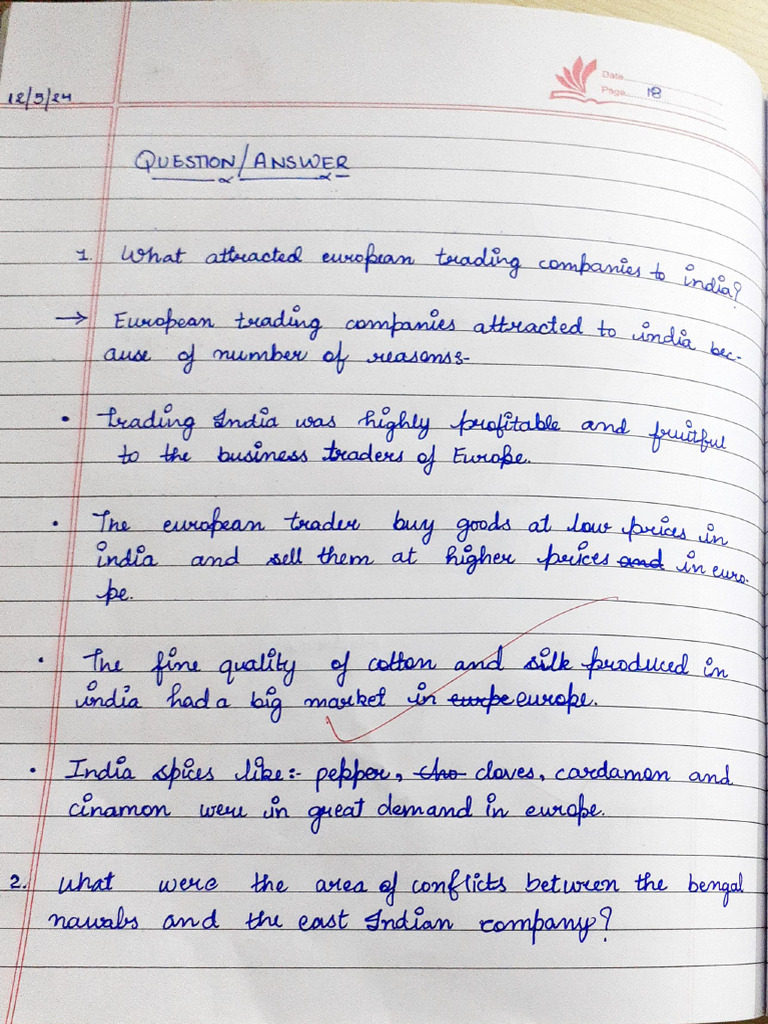 Date
12/5/24
Page 18
QUESTION/ANSWER
1. What attracted european trading companies to india?
→ European trading companies attracted to india bec-
ause of number of reasons:-
• trading India was highly profitable and fruitful
to the business traders of Europe.
• The european trader buy goods at low prices in
india and sell them at higher prices and in euro-
pe.
• The fine quality of cotton and silk produced in
india had a big market in eurpe europe.
• India spices like:- pepper, cho cloves, cardamon and
cinamon were in great demand in europe.
2. What were the area of conflicts between the bengal
nawabs and the east Indian company?